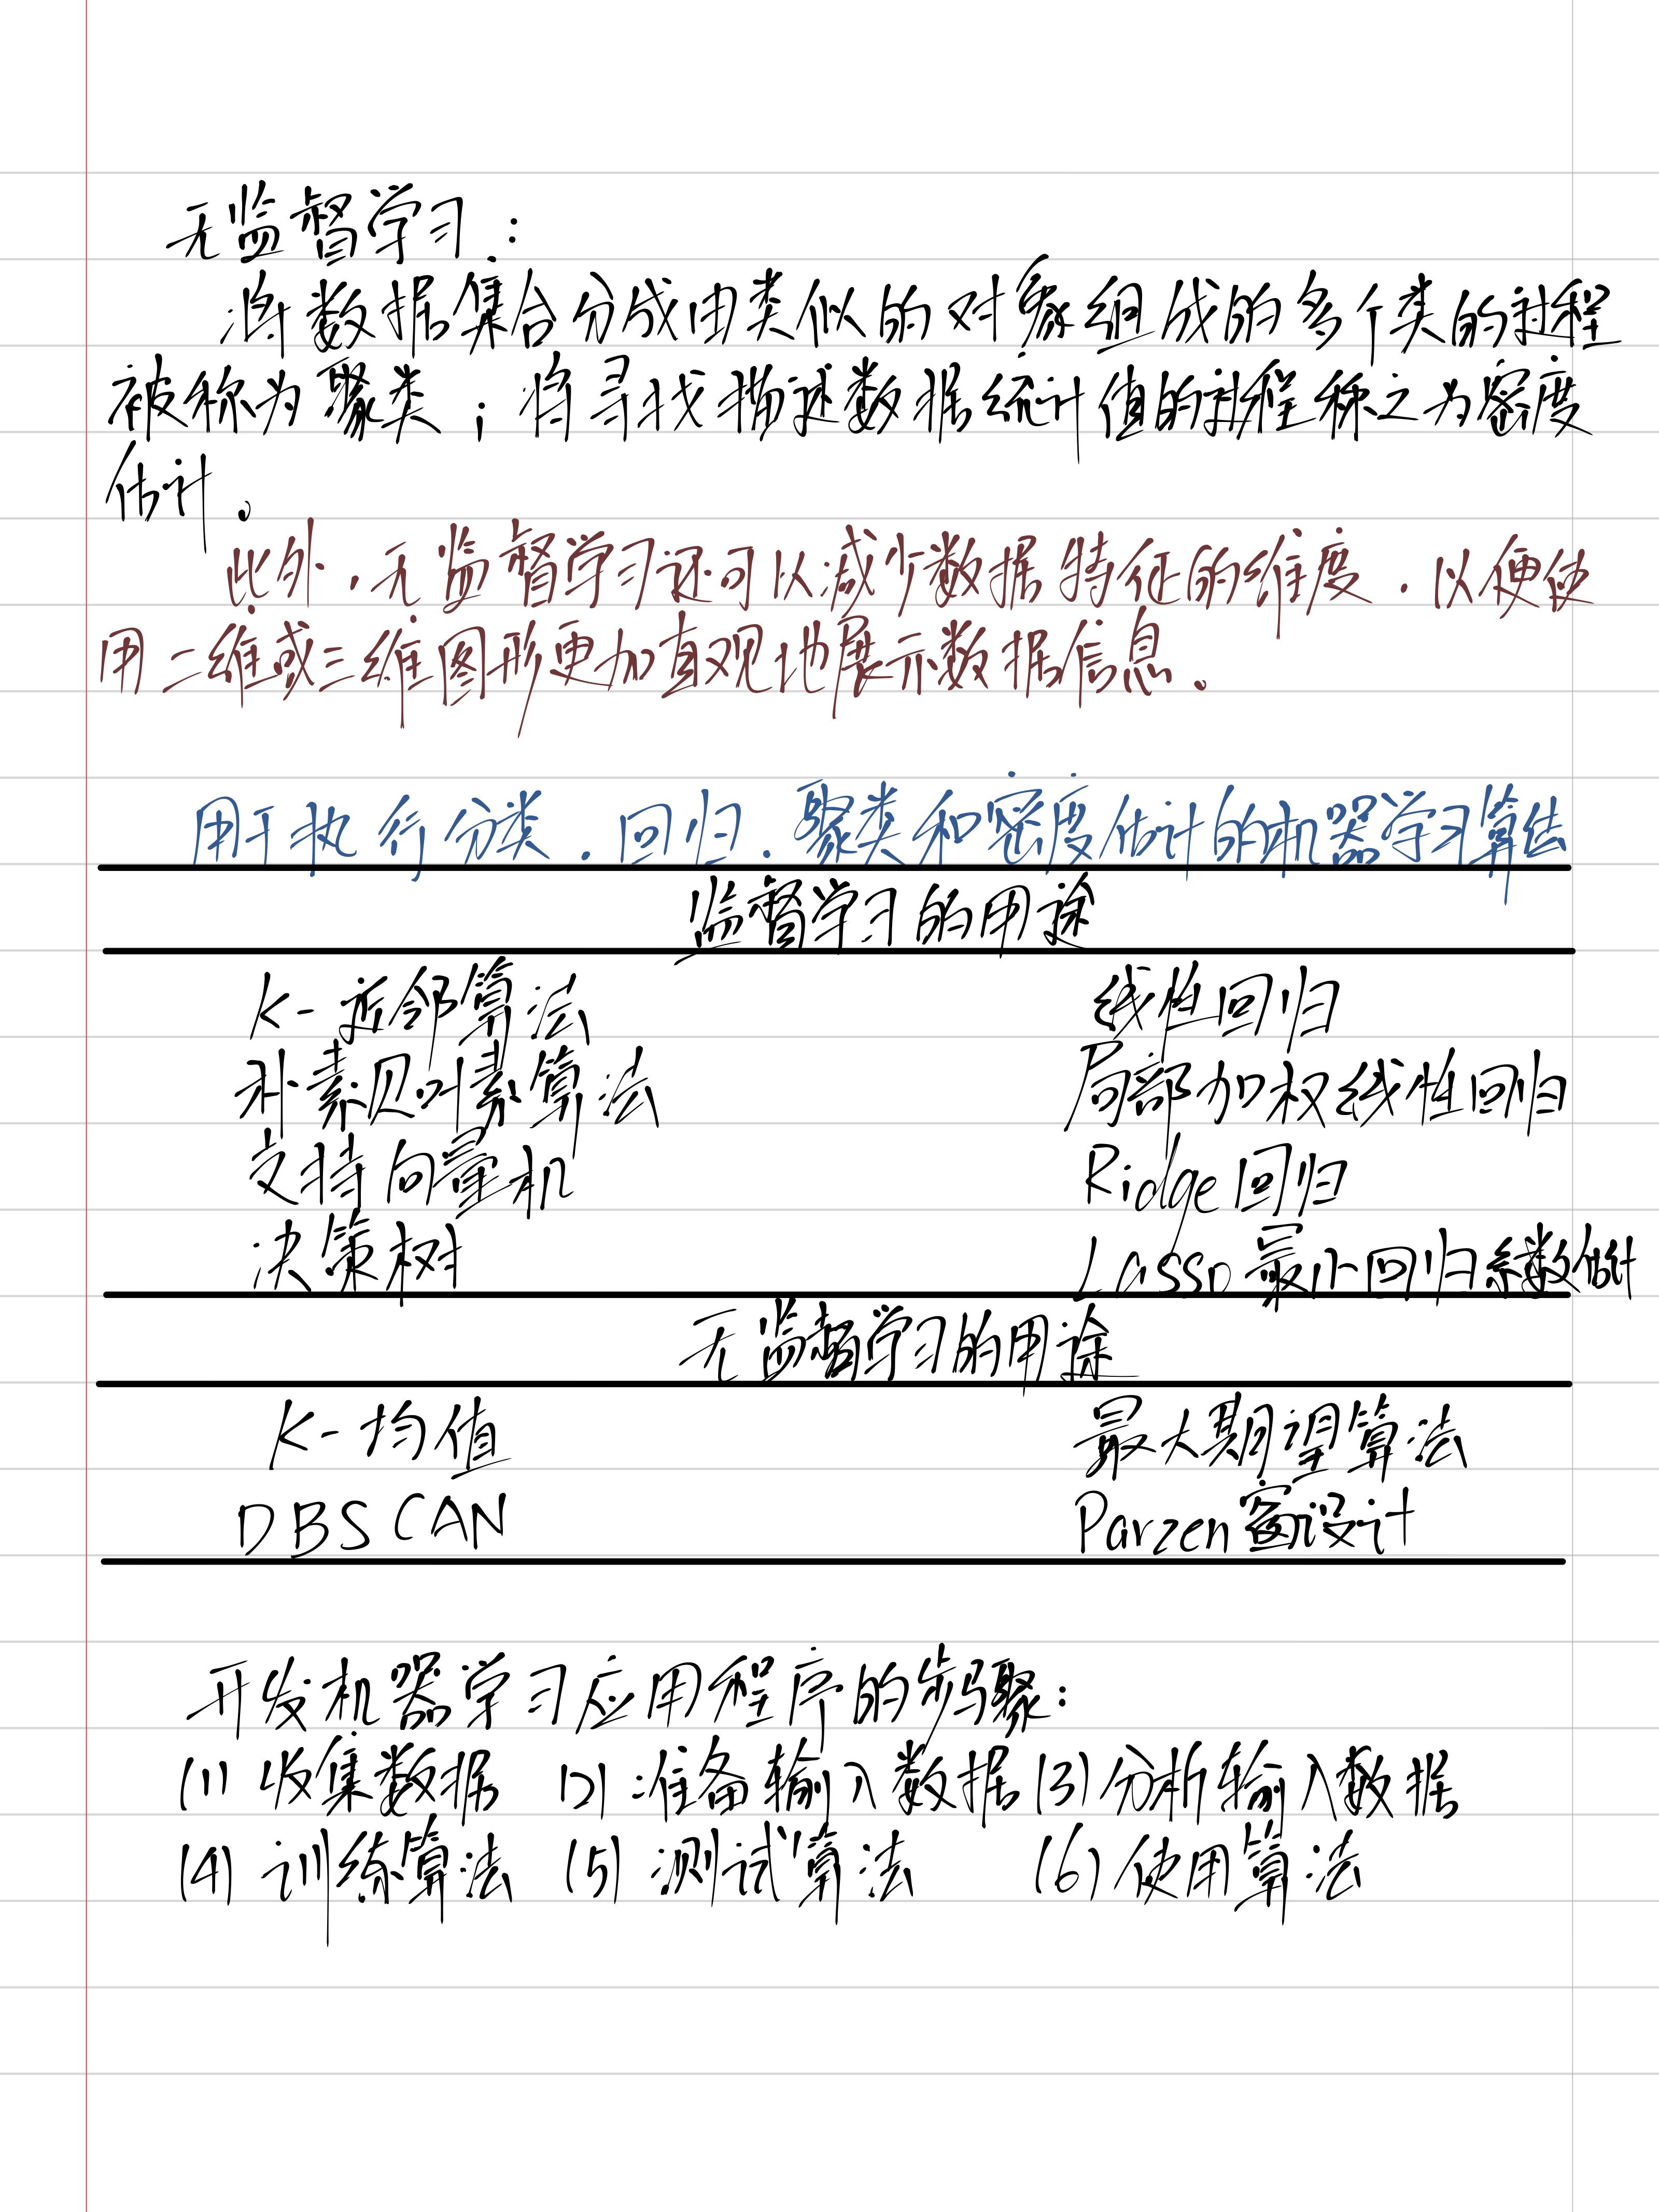 无监督学习：
将数据集合分成由类似的对象组成的多个类的过程
被称为聚类；将寻找描述数据统计值的过程称之为密度
估计。
此外，无监督学习还可以减少数据特征的维度，以便使
用二维或三维图形更加直观地展示数据信息。
用于执行分类、回归、聚类和密度估计的机器学习算法
监督学习的用途
K-近邻算法 线性回归
朴素贝叶素算法 局部加权线性回归
支持向量机 Ridge回归
决策树 Lasso最小回归系数估计
无监督学习的用途
K-均值 最大期望算法
DBSCAN Parzen窗设计
开发机器学习应用程序的步骤：
(1) 收集数据 (2) 准备输入数据 (3) 分析输入数据
(4) 训练算法 (5) 测试算法 (6) 使用算法